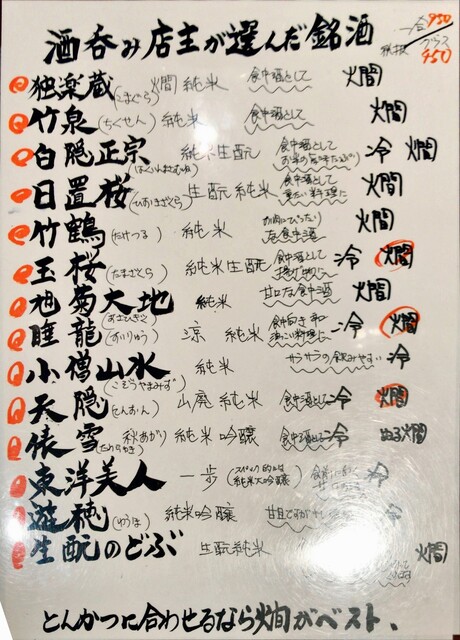 酒呑み店主が選んだ銘酒 一合950 グラス450 税抜
独楽蔵(こまぐら) 燗純米 食中酒として 燗
竹泉(ちくせん) 純米 食中酒として 燗
白隠正宗(はくいんまさむね) 純米生酛 食中酒として 冷 燗
日置桜(ひおきざくら) 生酛純米 食中酒として 重たい料理に 燗
竹鶴(たけつる) 純米 お肉にぴったりな食中酒 燗
玉桜(たまざくら) 純米生酛 食中酒として 揚げ物に 冷 燗
旭菊大地(あさひぎく) 純米 甘口な食中酒 燗
睡龍(すいりゅう) 涼 純米 食中向き 和 料理に 冷 燗
小僧山水(こぞうやまみず) 純米 サラサラの飲みやすい 冷
天隠(てんおん) 山廃純米 食中酒として 冷 燗
俵雪(たわらゆき) 秋あがり 純米吟醸 食中酒として 冷 ぬる燗
東洋美人 一歩(スペック的には純米大吟醸) 冷
遊穂(ゆうほ) 純米吟醸 甘旨ですが 冷
生酛のどぶ 生酛純米 燗
とんかつに合わせるなら燗がベスト、